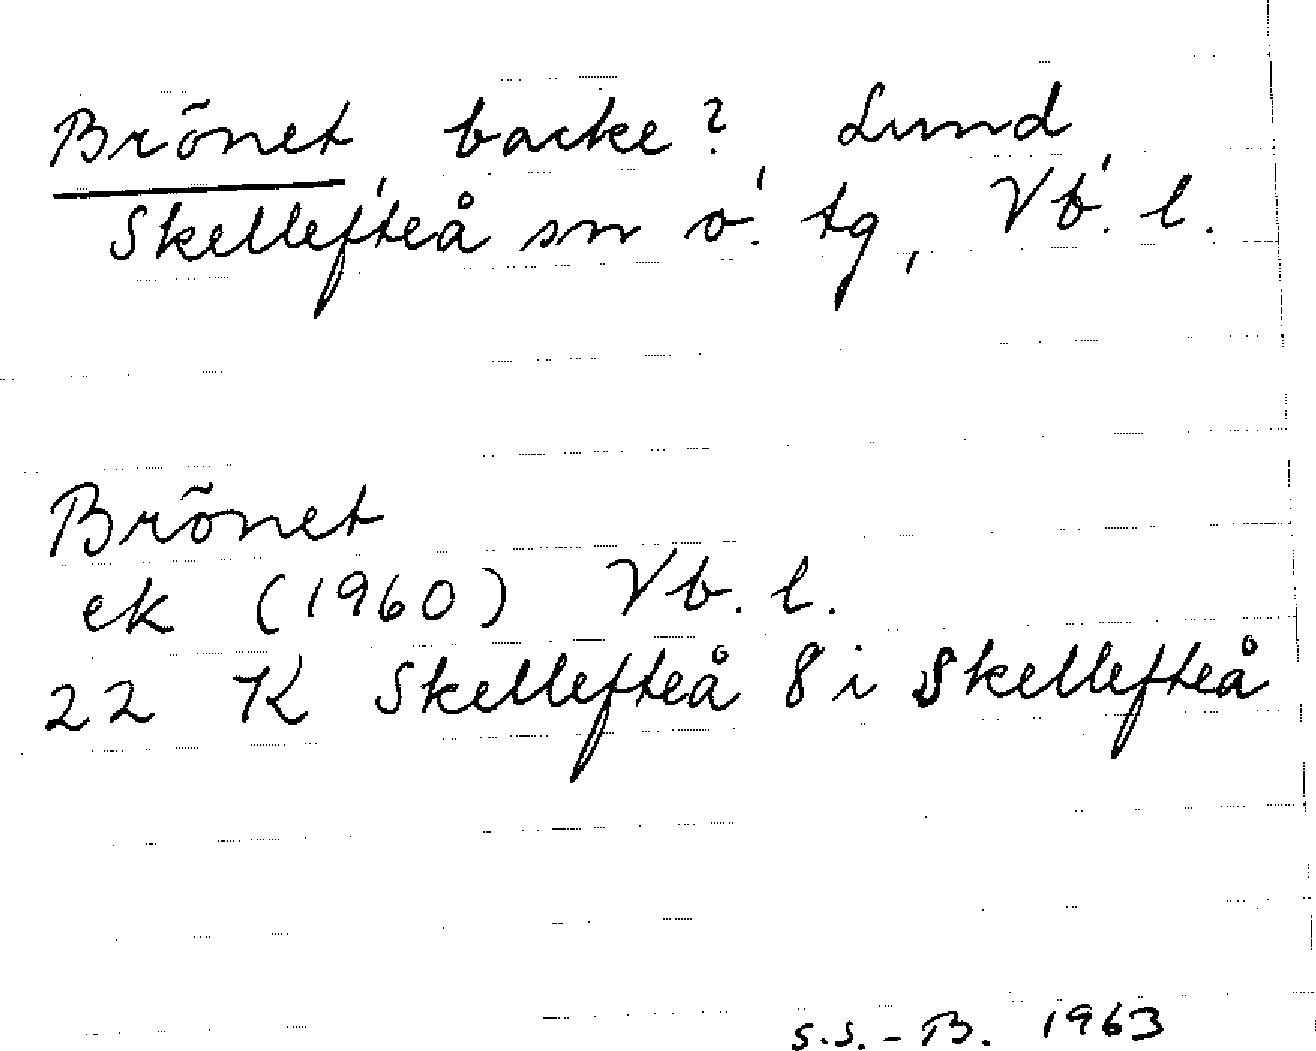 Brönet, backe? Lund,
Skellefteå sn o. tg, Vb. l.
Brönet
ek (1960) Vb. l.
22 K Skellefteå 8 i Skellefteå
S.S.-B. 1963